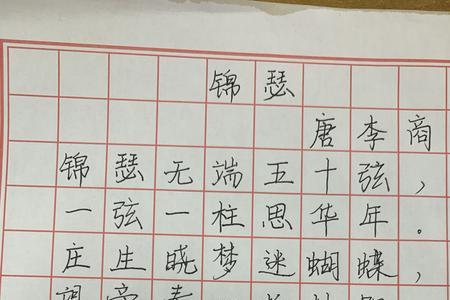 锦瑟
唐李商
锦瑟无端五十弦，
一弦一柱思华年。
庄生晓梦迷蝴蝶，
望帝春